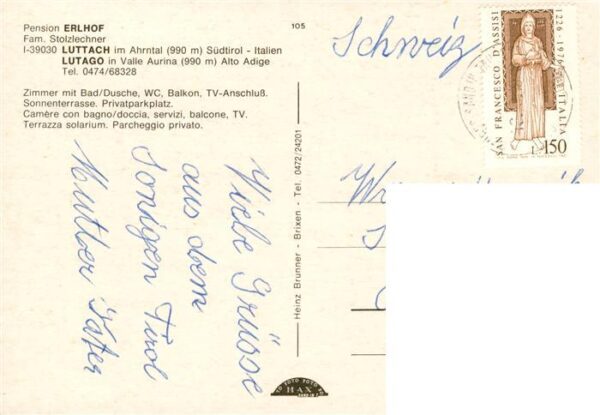 Pension ERLHOF
Fam. Stolzlechner
I-39030 LUTTACH im Ahrntal (990 m) Südtirol - Italien
LUTAGO in Valle Aurina (990 m) Alto Adige
Tel. 0474/68328
Zimmer mit Bad/Dusche, WC, Balkon, TV-Anschluß.
Sonnenterrasse. Privatparkplatz.
Camère con bagno/doccia, servizi, balcone, TV.
Terrazza solarium. Parcheggio privato.
105
Viele Grüsse
aus dem
Sonigen Tirol
Mutter Vater
Heinz Brunner - Brixen - Tel. 0472/24201
FOTO FOTO
MAX
Schweiz
SAN FRANCESCO D'ASSISI
1226 - 1976
ITALIA
L. 150